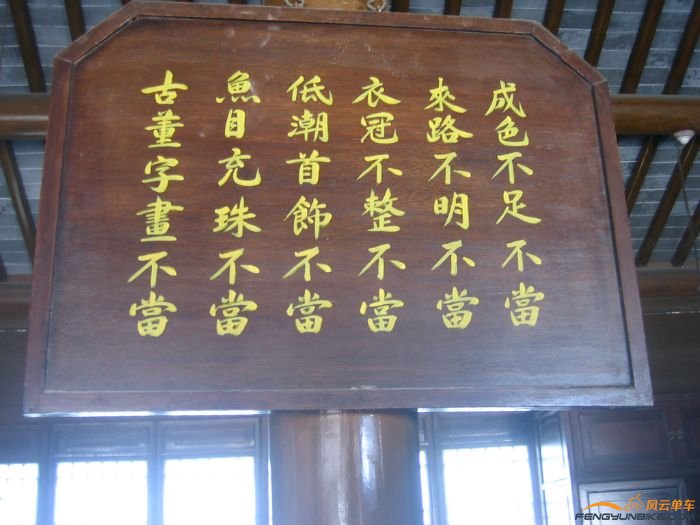 成色不足不當
來路不明不當
衣冠不整不當
低潮首飾不當
魚目充珠不當
古董字畫不當
风云单车
FENGYUNBIKE.COM